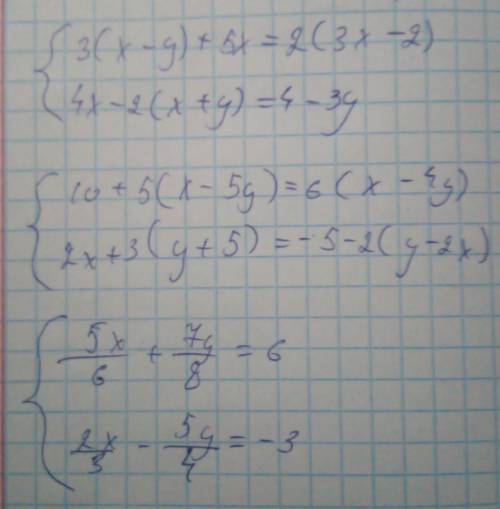 3(x-y)+5x=2(3x-2)
4x-2(x+y)=4-3y
10+5(x-5y)=6(x-4y)
2x+3(y+5)=-5-2(y-2x)
5x/6 + 7y/8 = 6
2x/3 - 5y/4 = -3